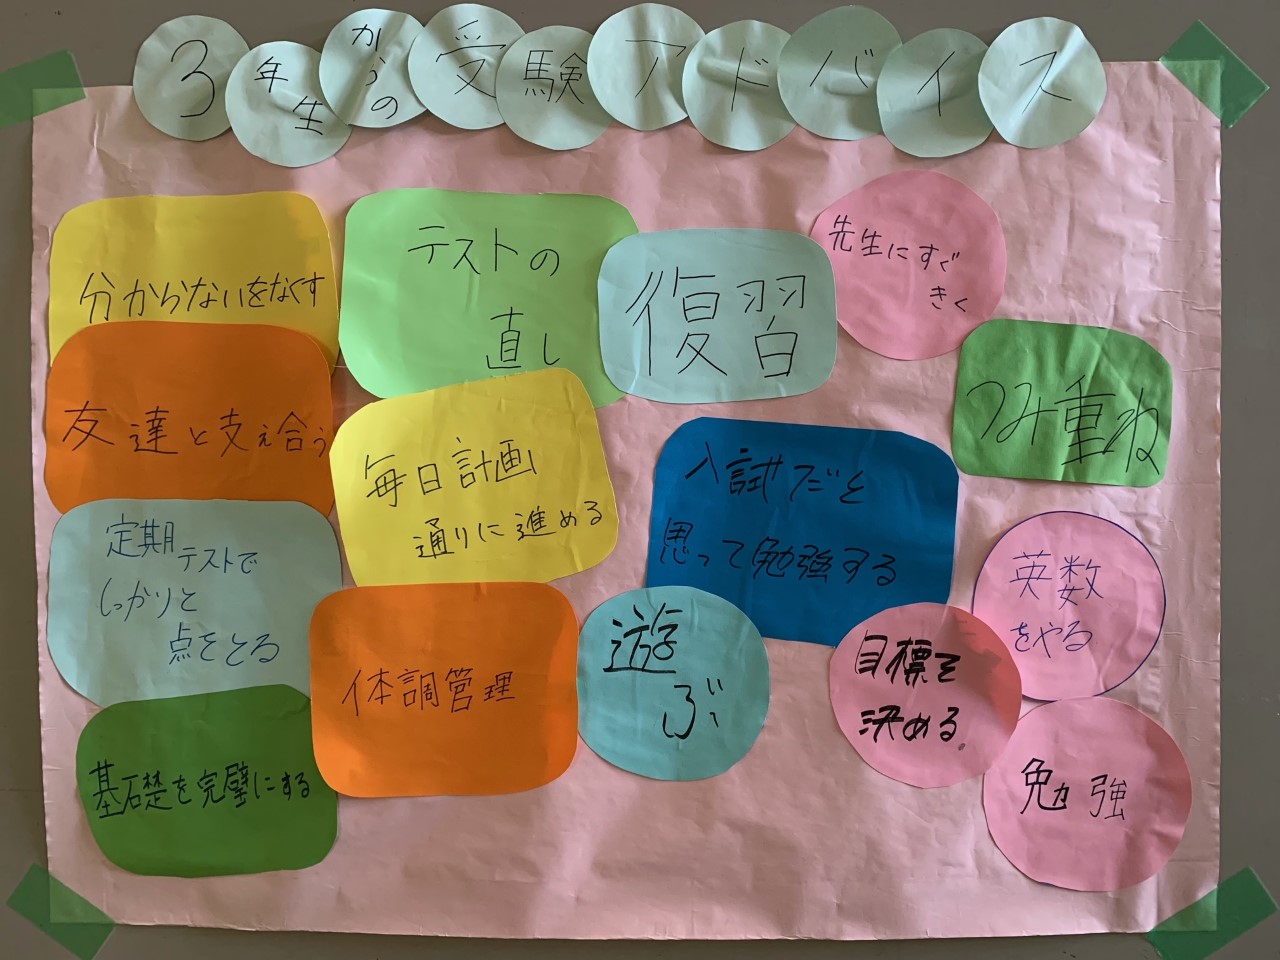 3年生からの受験アドバイス
分からないをなくす
テストの
直し
復習
先生にすぐ
きく
友達と支え合う
毎日計画
通りに進める
入試だと
思って勉強する
つみ重ね
定期テストで
しっかりと
点をとる
体調管理
遊
ぶ
目標を
決める。
英数
をやる
基礎を完璧にする
勉強